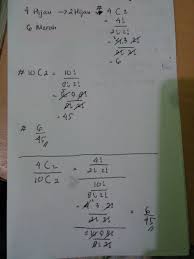 4 Hijau → 2 Hijau # 4C2
6 Merah = 4!
2! 2!
= 4.3.2!
2! 2!
= 6
# 10C2 = 10!
8! 2!
= 10.9.8!
8! 2!
= 45
# 6
45
4C2 = 4!
10C2 2! 2!
10!
8! 2!
= 4.3.2!
2! 2! = 6
10.9.8! 45
8! 2!